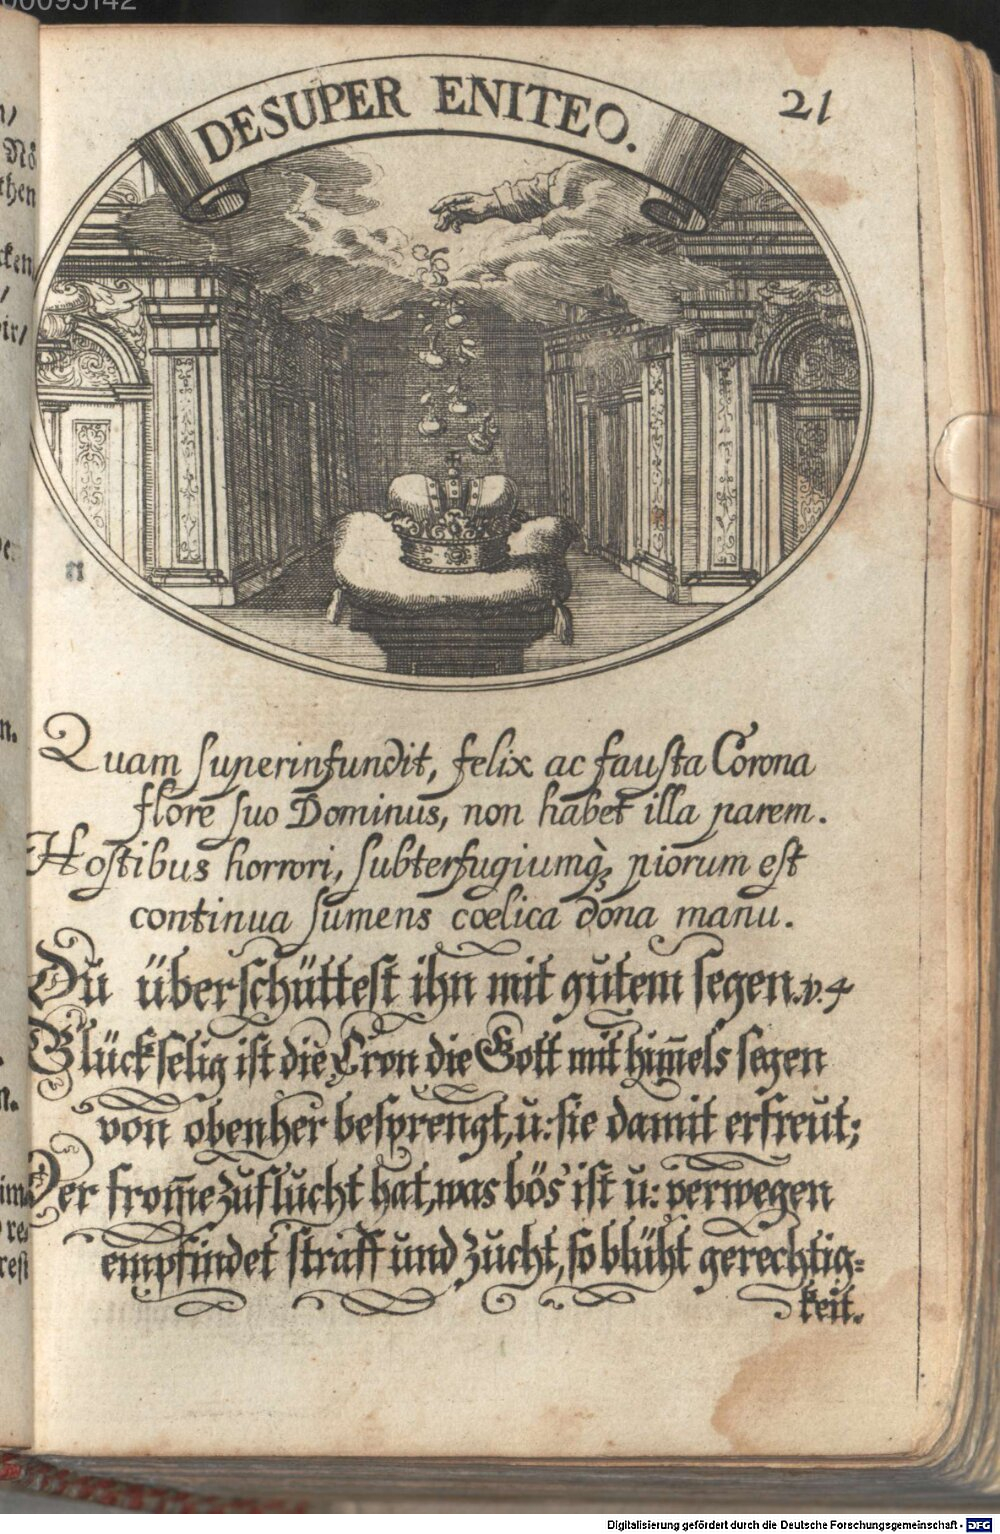 DESUPER ENITEO.
21
Quam superinfundit, felix ac fausta Corona
flore suo Dominus, non habet illa parem.
Hostibus horrori, subterfugiumq̀ȝ piorum est
continua sumens cœlica dona manu.
Du überschüttest ihn mit gutem segen. v. 4
Glückselig ist die Cron die Gott mit him̄els segen
von obenher besprengt, u: sie damit erfreut;
Der from̄e zuflucht hat, was bös ist u: verwegen
empfindet straff und zucht, so blüht gerechtig=
keit.
Digitalisierung gefördert durch die Deutsche Forschungsgemeinschaft - DFG